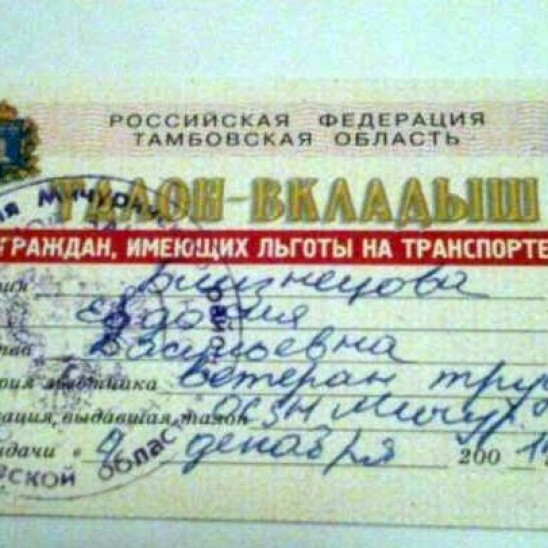 РОССИЙСКАЯ ФЕДЕРАЦИЯ
ТАМБОВСКАЯ ОБЛАСТЬ
ТАЛОН-ВКЛАДЫШ
ГРАЖДАН, ИМЕЮЩИХ ЛЬГОТЫ НА ТРАНСПОРТЕ
Близнецова
Евдокия
Васильевна
льготника Ветеран тру
ация, выдавшая талон ОСЗН Мичур
ыдачи " 9 декабря 200